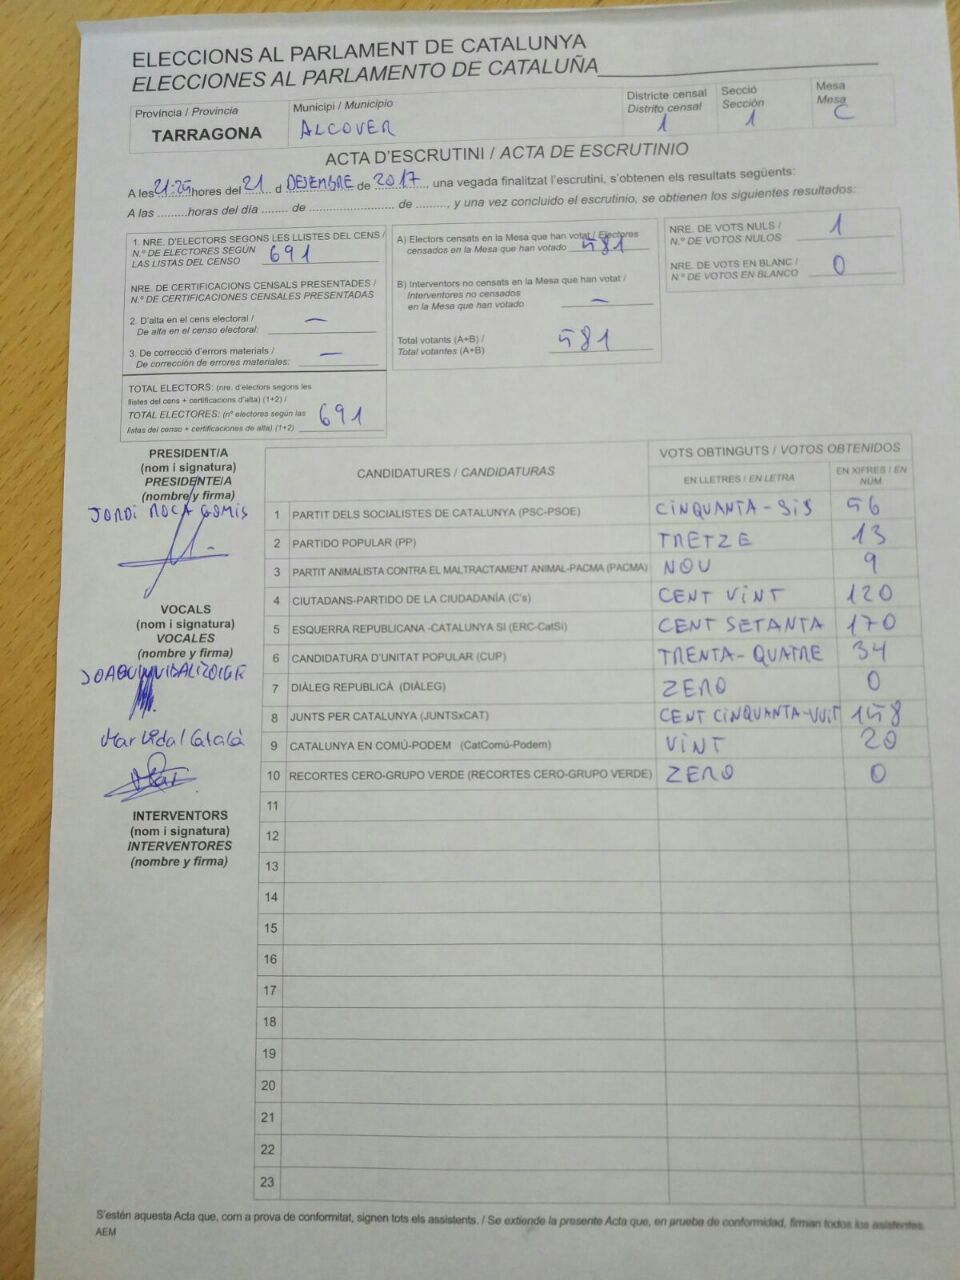 ELECCIONS AL PARLAMENT DE CATALUNYA
ELECCIONES AL PARLAMENTO DE CATALUÑA
Província / Provincia
TARRAGONA
Municipi / Municipio
ALCOVER
Districte censal
Distrito censal
1
Secció
Sección
1
Mesa
Mesa
C
ACTA D'ESCRUTINI / ACTA DE ESCRUTINIO
A les 21:25 hores del 21 d DESEMBRE de 2017, una vegada finalitzat l'escrutini, s'obtenen els resultats següents:
A las .........horas del día ........ de .......................... de ........., y una vez concluido el escrutinio, se obtienen los siguientes resultados:
1. NRE. D'ELECTORS SEGONS LES LLISTES DEL CENS /
N.º DE ELECTORES SEGÚN
LAS LISTAS DEL CENSO 691
NRE. DE CERTIFICACIONS CENSALS PRESENTADES /
N.º DE CERTIFICACIONES CENSALES PRESENTADAS
2. D'alta en el cens electoral /
De alta en el censo electoral: —
3. De correcció d'errors materials /
De corrección de errores materiales: —
TOTAL ELECTORS: (nre. d'electors segons les
llistes del cens + certificacions d'alta) (1+2) /
TOTAL ELECTORES: (nº electores según las
listas del censo + certificaciones de alta) (1+2) 691
A) Electors censats en la Mesa que han votat / Electores
censados en la Mesa que han votado 581
B) Interventors no censats en la Mesa que han votat /
Interventores no censados
en la Mesa que han votado —
Total votants (A+B) /
Total votantes (A+B) 581
NRE. DE VOTS NULS /
N.º DE VOTOS NULOS 1
NRE. DE VOTS EN BLANC /
N.º DE VOTOS EN BLANCO 0
PRESIDENT/A
(nom i signatura)
PRESIDENTE/A
(nombre y firma)
JORDI ROCA GOMIS
VOCALS
(nom i signatura)
VOCALES
(nombre y firma)
Mar Vidal Català
INTERVENTORS
(nom i signatura)
INTERVENTORES
(nombre y firma)
CANDIDATURES / CANDIDATURAS
VOTS OBTINGUTS / VOTOS OBTENIDOS
EN LLETRES / EN LETRA
EN XIFRES / EN
NUM.
1 PARTIT DELS SOCIALISTES DE CATALUNYA (PSC-PSOE) CINQUANTA-SIS 56
2 PARTIDO POPULAR (PP) TRETZE 13
3 PARTIT ANIMALISTA CONTRA EL MALTRACTAMENT ANIMAL-PACMA (PACMA) NOU 9
4 CIUTADANS-PARTIDO DE LA CIUDADANÍA (C's) CENT VINT 120
5 ESQUERRA REPUBLICANA -CATALUNYA SI (ERC-CatSí) CENT SETANTA 170
6 CANDIDATURA D'UNITAT POPULAR (CUP) TRENTA-QUATRE 34
7 DIÀLEG REPUBLICÀ (DIÀLEG) ZERO 0
8 JUNTS PER CATALUNYA (JUNTSxCAT) CENT CINQUANTA-VUIT 158
9 CATALUNYA EN COMÚ-PODEM (CatComú-Podem) VINT 20
10 RECORTES CERO-GRUPO VERDE (RECORTES CERO-GRUPO VERDE) ZERO 0
11
12
13
14
15
16
17
18
19
20
21
22
23
S'estén aquesta Acta que, com a prova de conformitat, signen tots els assistents. / Se extiende la presente Acta que, en prueba de conformidad, firman todos los asistentes.
AEM